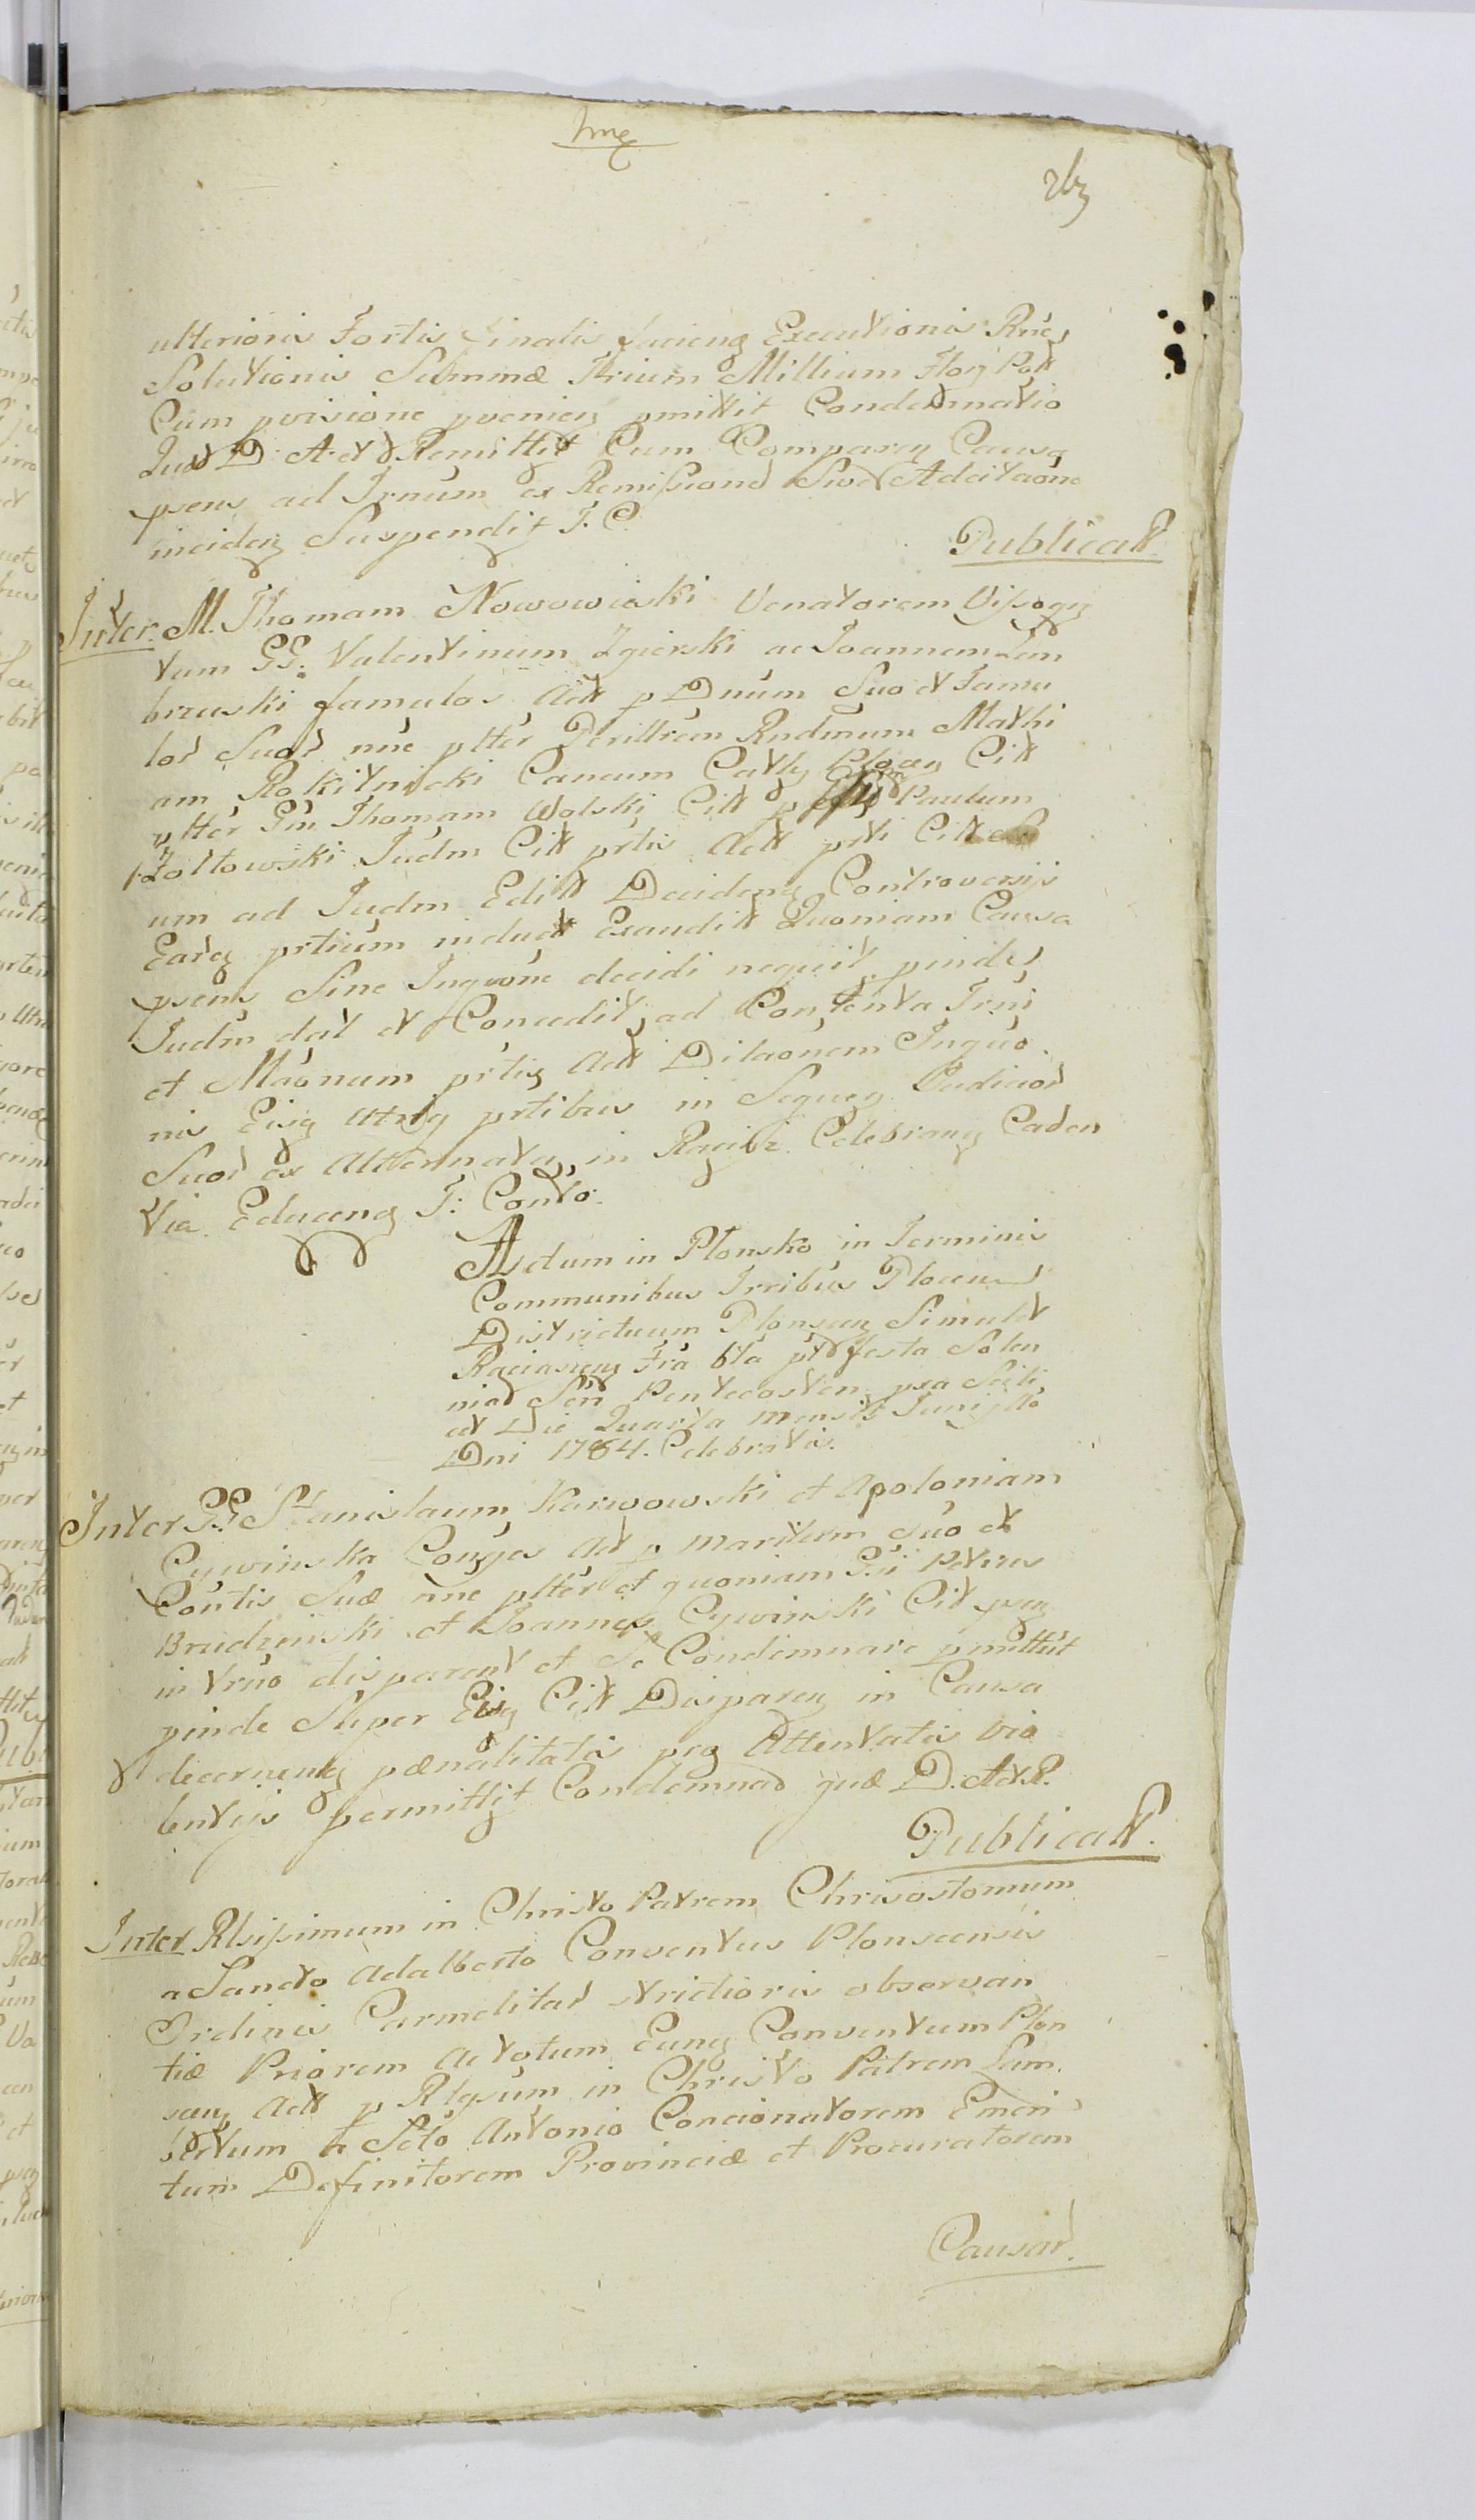 263
ulterioris Fortis Finalis faciend Executionis Rneq
Solutionis Summæ Trium Millium Flor Pol
Cum pvisione pvenien pmittit Condemnatio
Quæ D. A. et R Remittit Cum Comparen Causa
psens ad Irnum ex Remissione Sive Adcitaone
inciden Suspendit T. C.
Publicat.
Inter M. Thomam Nowowieski Venatorem Vissogr
tum GG. Valentinum Zgierski ac Joannem Lem
bizuski famulos Act p Dnum Suo et Famu
lor Suor nne ptter Perillrem Rndmum Mathi
am Rokitnicki Cancum Cathy Plocen Citt
ptter Gm Thomam Wolski Citt p Paulum
Zottowski Judm Citt prtis Act prti Citt
um ad Judm Edit Decidend Controversijs
Earq prtium induct Exaudit Quoniam Causa
psens Sine Inqvone decidi nequit pinde
Judm dat et Concedit ad Contenta Irni
et Maonum prtis Act Dilaonem Inqvo
nis Eisq Utrisq prtibus in Sequen Judicior
Suor ex Alternata in Raciaz Celebrand Caden
tia Educend T: Conto.
Actum in Plonsko in Terminis
Communibus Trribus Plocen
Districtuum Plonscen Simulet
Raciasen Fria 6ta pt festa Solen
nia Scti Pentecosten pxa Scili
cet Die Quarta mensis Junij Ao
Dni 1784. Celebratis.
Inter GG Stanislaum Karwowski et Apoloniam
Cywinska Conjges Act p maritum Suo et
Contis Suæ nne ptter et quoniam Gi Petrus
Brudzinski et Joannes Cywinski Cit psen
in trno disparent et Se Condemnare pmittut
pinde Super Eisq Citt Disparen in Causa
decernend pænalitatis peq Attentatis Vio
lentijs permittit Condemnao quæ D. A et R.
Publicat.
Inter Rlsissimum in Christo Patrem Chrisostomum
a Sancto Adalberto Conventus Plonscensis
Ordinis Carmelitar strictioris observan
tiæ Priorem Ac totum Eunq Conventum Plon
scen Act p Rlgsum in Christo Patrem Lam
bertum a Scto Antonio Concionatorem Emeri
tum Definitorem Provinciæ et Procuratorem
Causar.